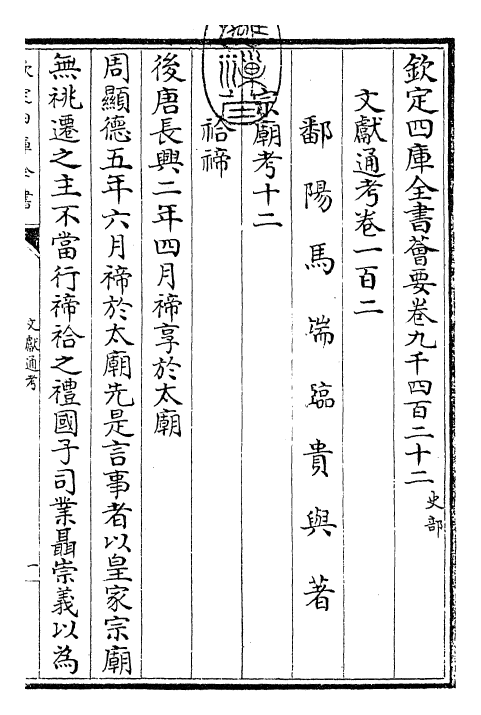 欽定四庫全書薈要卷九千四百二十二史部
文獻通考卷一百二
鄱陽馬端臨貴與著
宗廟考十二
祫禘
後唐長興二年四月禘享於太廟
周顯德五年六月禘於太廟先是言事者以皇家宗廟
無祧遷之主不當行禘祫之禮國子司業聶崇義以為
欽定四庫全書
文獻通考
一